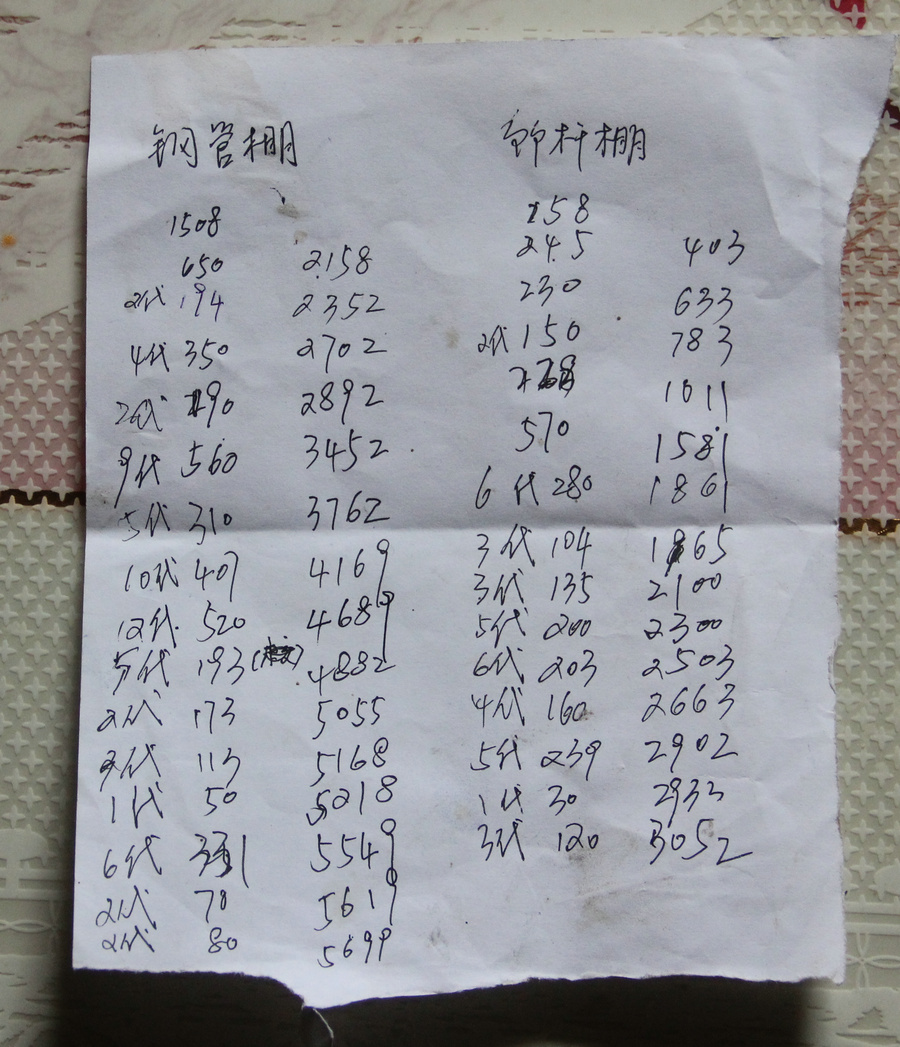 钢管棚
1508
650 2158
2代 194 2352
4代 350 2702
2代 190 2892
9代 560 3452
5代 310 3762
10代 407 4169
12代 520 4689
5代 193 4882
2代 173 5055
代 113 5168
1代 50 5218
6代 331 5549
2代 70 5619
2代 80 5699
杆棚
158
245 403
230 633
2代 150 783
1011
570 1581
6代 280 1861
3代 104 1965
3代 135 2100
5代 200 2300
6代 203 2503
4代 160 2663
5代 239 2902
1代 30 2932
3代 120 3052